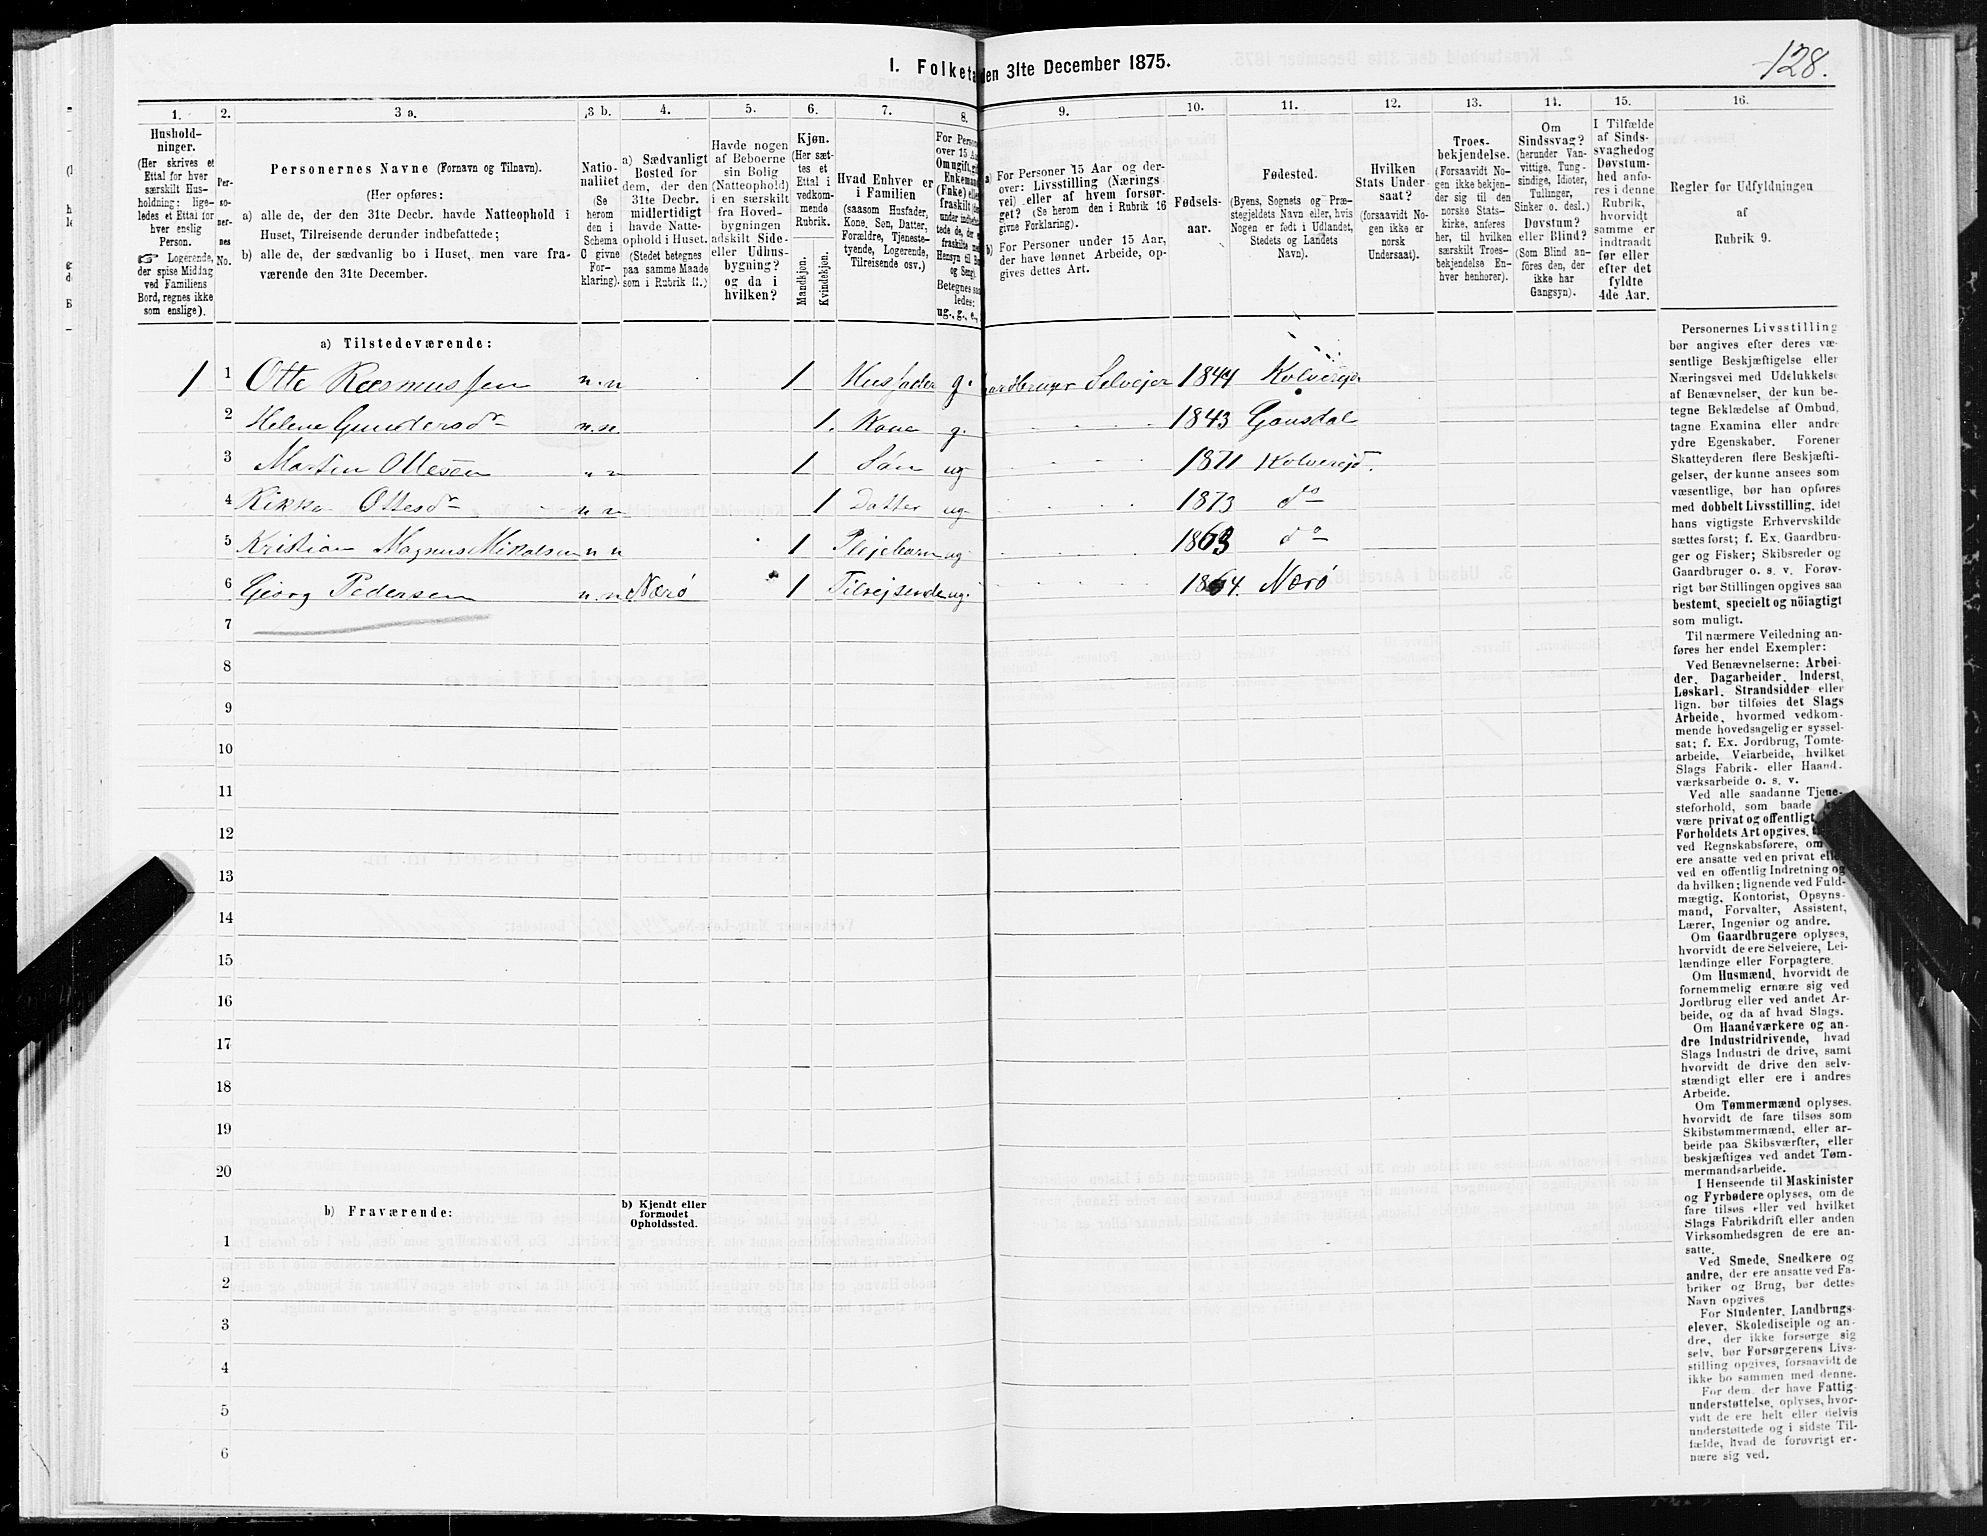 I. Folketa den 31te December 1875.
128.
1.
2.
3 a.
3 b.
4.
5.
6.
7.
8.
9.
10.
11.
12.
13.
14.
15.
16.
Hushold-
ninger.
(Her skrives et
Ettal for hver
særskilt Hus-
holdning; lige-
ledes et Ettal for
hver enslig
Person.
☞ Logerende,
der spise Middag
ved Familiens
Bord, regnes ikke
som enslige).
Per-
so-
ner-
nes
No.
Personernes Navne (Fornavn og Tilnavn).
(Her opføres:
a) alle de, der den 31te Decbr. havde Natteophold i
Huset, Tilreisende derunder indbefattede;
b) alle de, der sædvanlig bo i Huset, men vare fra-
værende den 31te December.
Natio-
nalitet
(Se
herom
den i
Schema
C givne
For-
klaring).
a) Sædvanligt
Bosted for
dem, der den
31te Decbr.
midlertidigt
havde Natte-
ophold i Huset.
(Stedet betegnes
paa samme Maade
som i Rubrik 11.)
Havde nogen
af Beboerne
sin Bolig
(Natteophold)
i en særskilt
fra Hoved-
bygningen
adskilt Side-
eller Udhus-
bygning?
og da i
hvilken?
Kjøn.
(Her sæt-
tes et
Ettal i
vedkom-
mende
Rubrik.
Mandkjøn.
Kvindekjøn.
Hvad Enhver er
i Familien
(saasom Husfader,
Kone, Søn, Datter,
Forældre, Tjeneste-
tyende, Logerende,
Tilreisende osv.)
For Person
over 15 Aa
Om ugift, gi
Enkemand
(Enke) elle
fraskilt
under indbefat-
tede de, de
fraskilte m
Hensyn til Bo
og Seng).
Betegnes saa
ledes:
ug., g., e.,
a) For Personer 15 Aar og der-
over: Livsstilling (Nærings
vei) eller af hvem forsør-
get? (Se herom den i Rubrik 16
givne Forklaring).
b) For Personer under 15 Aar,
der have lønnet Arbeide, op-
gives dettes Art.
Fødsels-
aar.
Fødested.
(Byens, Sognets og Præ-
stegjeldets Navn eller, hvis
Nogen er født i Udlandet,
Stedets og Landets
Navn).
Hvilken
Stats Under-
saat?
(forsaavidt No-
gen ikke er
norsk
Undersaat).
Troes-
bekjendelse.
(Forsaavidt No-
gen ikke bekjen-
der sig til den
norske Stats-
kirke, anføres
her, til hvilken
særskilt Troes-
bekjendelse En-
hver henhører).
Om
Sindssvag?
(herunder Van-
vittige, Tung-
sindige, Idioter,
Tullinger,
Sinker o. desl.)
Døvstum?
eller Blind?
(Som Blind an-
føres den, der
ikke har
Gangsyn).
I Tilfælde
af Sinds-
svaghed og
Døvstum-
hed anfø-
res i denne
Rubrik,
hvorvidt
samme er
indtraadt
før eller
efter det
fyldte
4de Aar.
Regler for Udfyldningen
af
Rubrik 9.
a) Tilstedeværende:
1 1 Otte Rasmussen n.n 1 Husfader g. Gardbruger Selvejer 1844 Kolverejd
2 Helene Gundersdr n.n 1. Kone g. 1843 Gansdal
3 Martin Ottesen n n 1 Søn ug 1871 Kolverejd.
4 Kikka Ottesdr n n 1 Datter ug 1873 do
5 Kristian Magnus Mikalsen n n 1 Plejebarn ug 1863 do
6 Georg Pedersen n.n Nærø 1 Tilrejsende ug. 1864. Nærø
7
8
9
10
11
12
13
14
15
16
17
18
19
20
b) Fraværende:
b) Kjendt eller
formodet
Opholdssted.
1
2
3
4
5
6
Personernes Livsstilling
bør angives efter deres væ-
sentlige Beskjæftigelse eller
Næringsvei med Udelukkelse
af Benævnelser, der kun be-
tegne Beklædelse af Ombud,
tagne Examina eller andre
ydre Egenskaber. Forener
Skatteyderen flere Beskjæfti-
gelser, der kunne ansees som
væsentlige, bør han opføres
med dobbelt Livsstilling, idet
hans vigtigste Erhvervskilde
sættes først; f. Ex. Gaardbru-
ger og Fisker; Skibsreder og
Gaardbruger o. s. v. Forøv-
rigt bør Stillingen opgives saa
bestemt, specielt og nöiagtigt
som muligt.
Til nærmere Veiledning an-
føres her endel Exempler:
Ved Benævnelserne: Arbei-
der, Dagarbeider, Inderst,
Løskarl, Strandsidder eller
lign. bør tilføies det Slags
Arbeide, hvormed vedkom-
mende hovedsagelig er syssel-
sat; f. Ex. Jordbrug, Tomte-
arbeide, Veiarbeide, hvilket
Slags Fabrik- eller Haand-
værksarbeide o. s. v.
Ved alle saadanne Tjene-
steforhold, som baade
være privat og offentligt
Forholdets Art opgives,
ved Regnskabsførere, om
ere ansatte ved en privat eller
ved en offentlig Indretning og
da hvilken; lignende ved Fuld-
mægtig, Kontorist, Opsyns-
mand, Forvalter, Assistent,
Lærer, Ingeniør og andre.
Om Gaardbrugere oplyses,
hvorvidt de ere Selveiere, Lei-
lændinge eller Forpagtere.
Om Husmænd, hvorvidt de
fornemmelig ernære sig ved
Jordbrug eller ved andet Ar-
beide, og da af hvad Slags.
Om Haandværkere og an-
dre Industridrivende, hvad
Slags Industri de drive, samt
hvorvidt de drive den selv-
stændigt eller ere i andres
Arbeide.
Om Tømmermænd oplyses,
hvorvidt de fare tilsøs som
Skibstømmermænd, eller ar-
beide paa Skibsværfter, eller
beskjæftiges ved andet Tøm-
mermandsarbeide.
I Henseende til Maskinister
og Fyrbødere oplyses, om de
fare tilsøs eller ved hvilket
Slags Fabrikdrift eller anden
Virksomhedsgren de ere an-
satte.
Ved Smede, Snedkere og
andre, der ere ansatte ved Fa-
briker og Brug, bør dettes
Navn opgives
For Studenter, Landbrugs-
elever, Skoledisciple og an-
dre, der ikke forsørge sig
selv, bør Forsørgerens Livs-
stilling opgives, forsaavidt de
ikke bo sammen med denne.
For dem, der have Fattig-
understøttelse, oplyses, hvor-
vidt de ere helt eller delvis
understøttede og i sidste Til-
fælde, hvad de forøvrigt er-
nære sig ved.